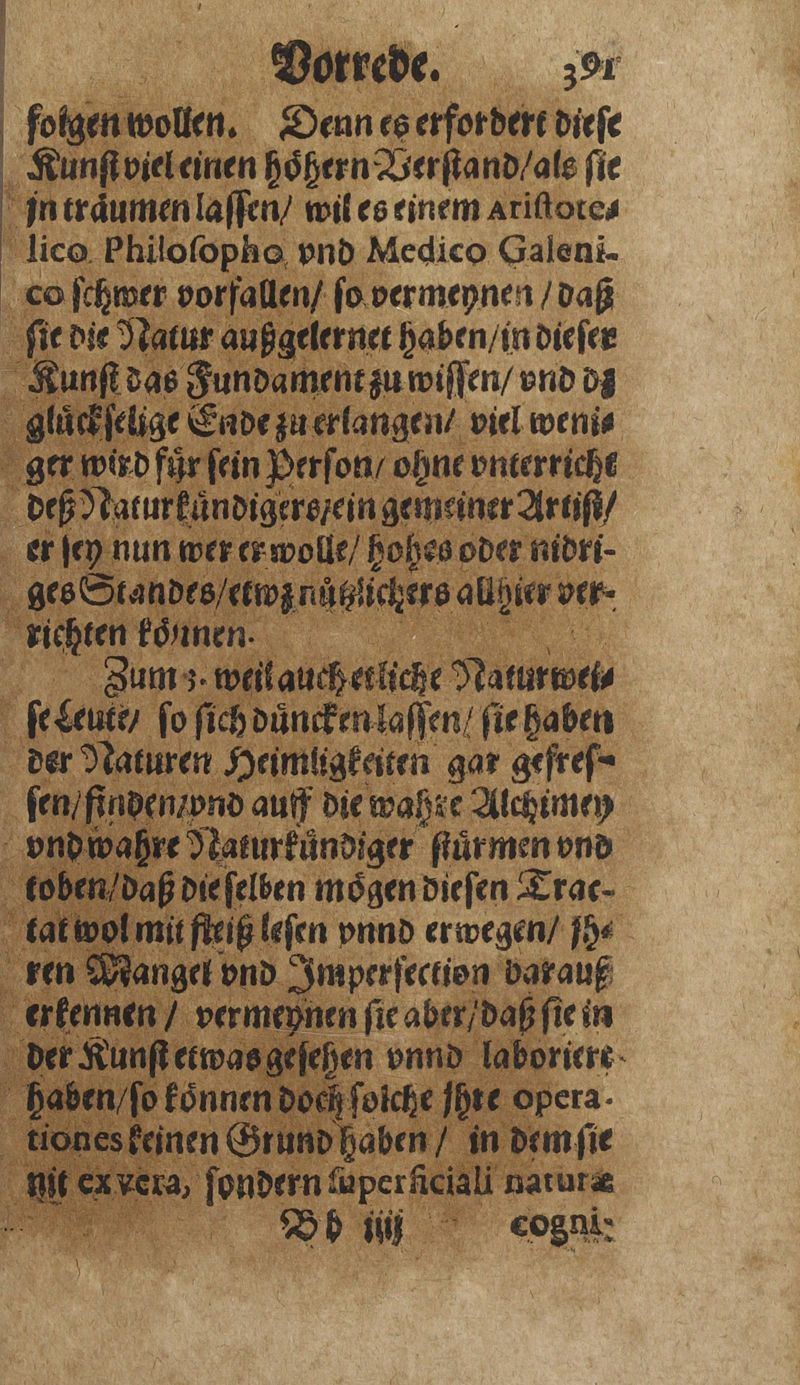 Vorrede. 391
folgen wollen. Denn es erfordert dieſe
Kunſt viel einen höhern Verſtand/als ſie
jn träumen laſſen/ wil es einem Ariſtote⸗
lico Philoſopho vnd Medico Galeni-
co ſchwer vorfallen/ ſo vermeynen / daß
ſie die Natur außgelernet haben/in dieſer
Kunſt das Fundament zu wiſſen/ vnd dz
glückſelige Ende zu erlangen/ viel weni⸗
ger wird für ſein Perſon/ ohne vnterricht
deß Naturkündigers/ein gemeiner Artiſt/
er ſey nun wer er wolle/ hohes oder nidri-
ges Standes/etwz nützlichers allhier ver-
richten können.
Zum 3. weil auch etliche Naturwei⸗
ſe Leute/ ſo ſich düncken laſſen/ ſie haben
der Naturen Heimligkeiten gar gefreſ⸗
ſen/finden/vnd auff die wahre Alchimey
vnd wahre Naturkündiger ſtürmen vnd
toben/daß dieſelben mögen dieſen Trac-
tat wol mit fleiß leſen vnnd erwegen/ jh⸗
ren Mangel vnd Imperfection darauß
erkennen / vermeynen ſie aber/daß ſie in
der Kunſt etwas geſehen vnnd laboriert
haben/ſo können doch ſolche jhre opera-
tiones keinen Grund haben / in dem ſie
nit ex vera, ſondern ſuperficiali naturæ
Bb iiij cogni-